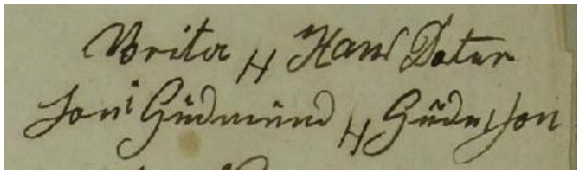 Brita H Hans Doter
Soni Gudmund H Gudm son